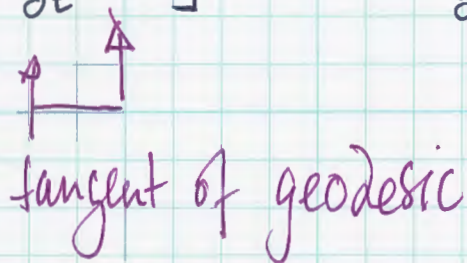 tangent of geodesic